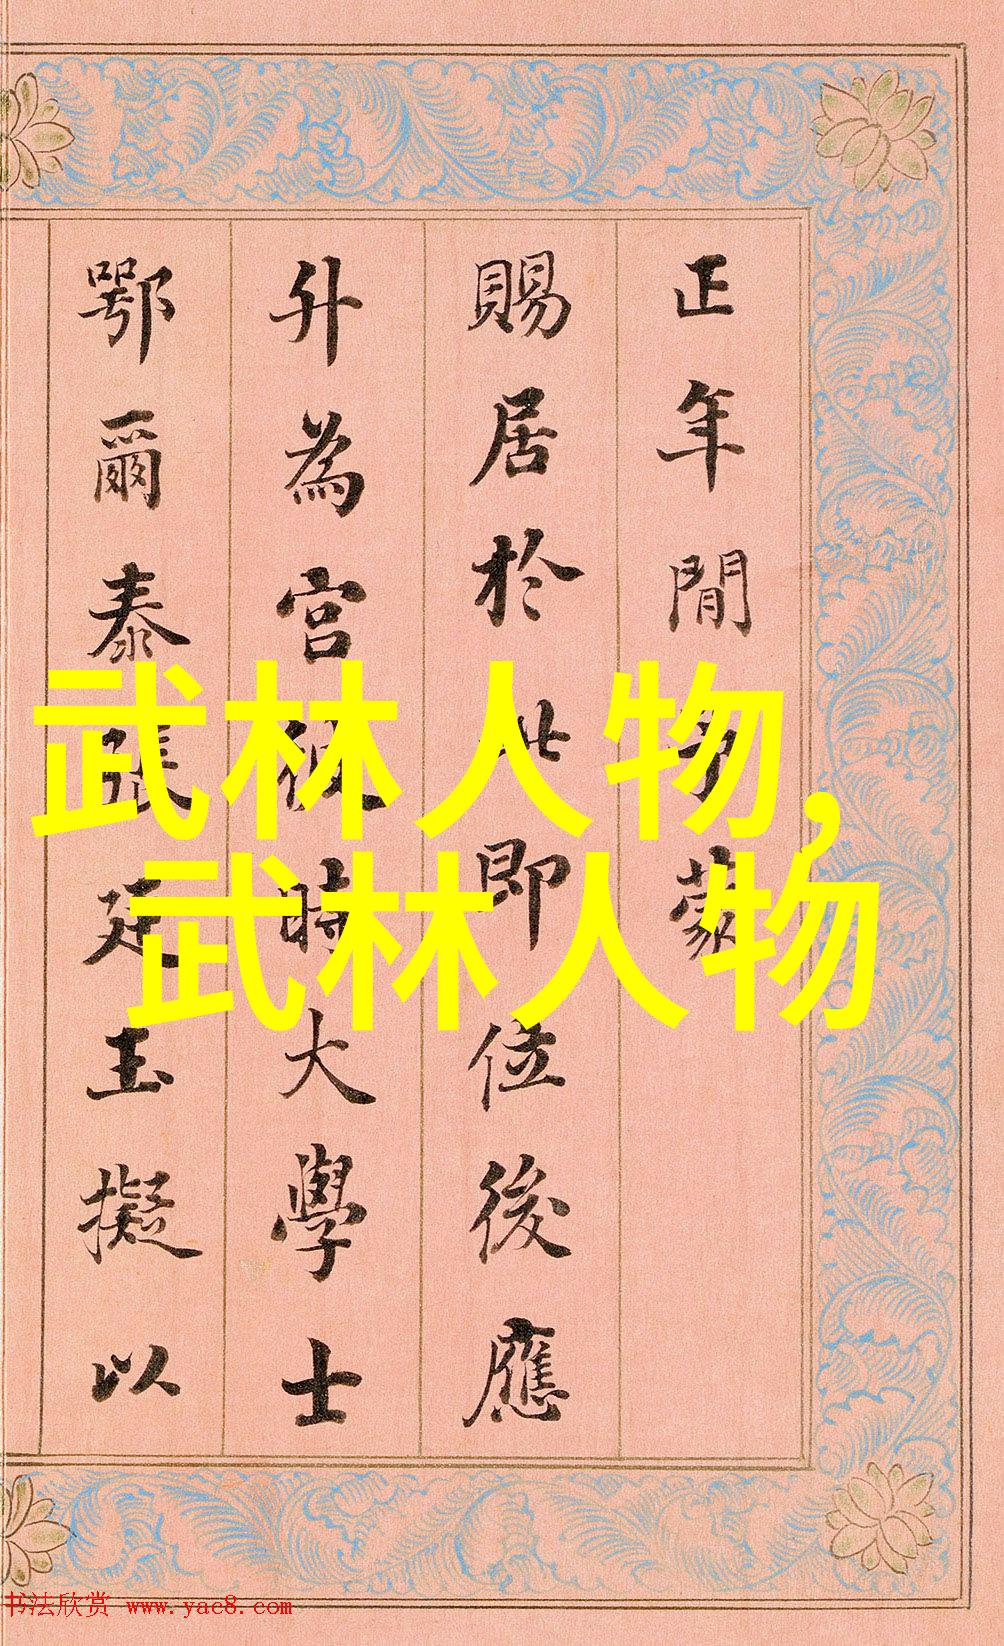 正年間多蒙
賜居於此即位後應
升為宮彼時大學士
鄂爾泰張廷玉擬以
武林人物,
武林人物
书法欣赏 www.yac8.com